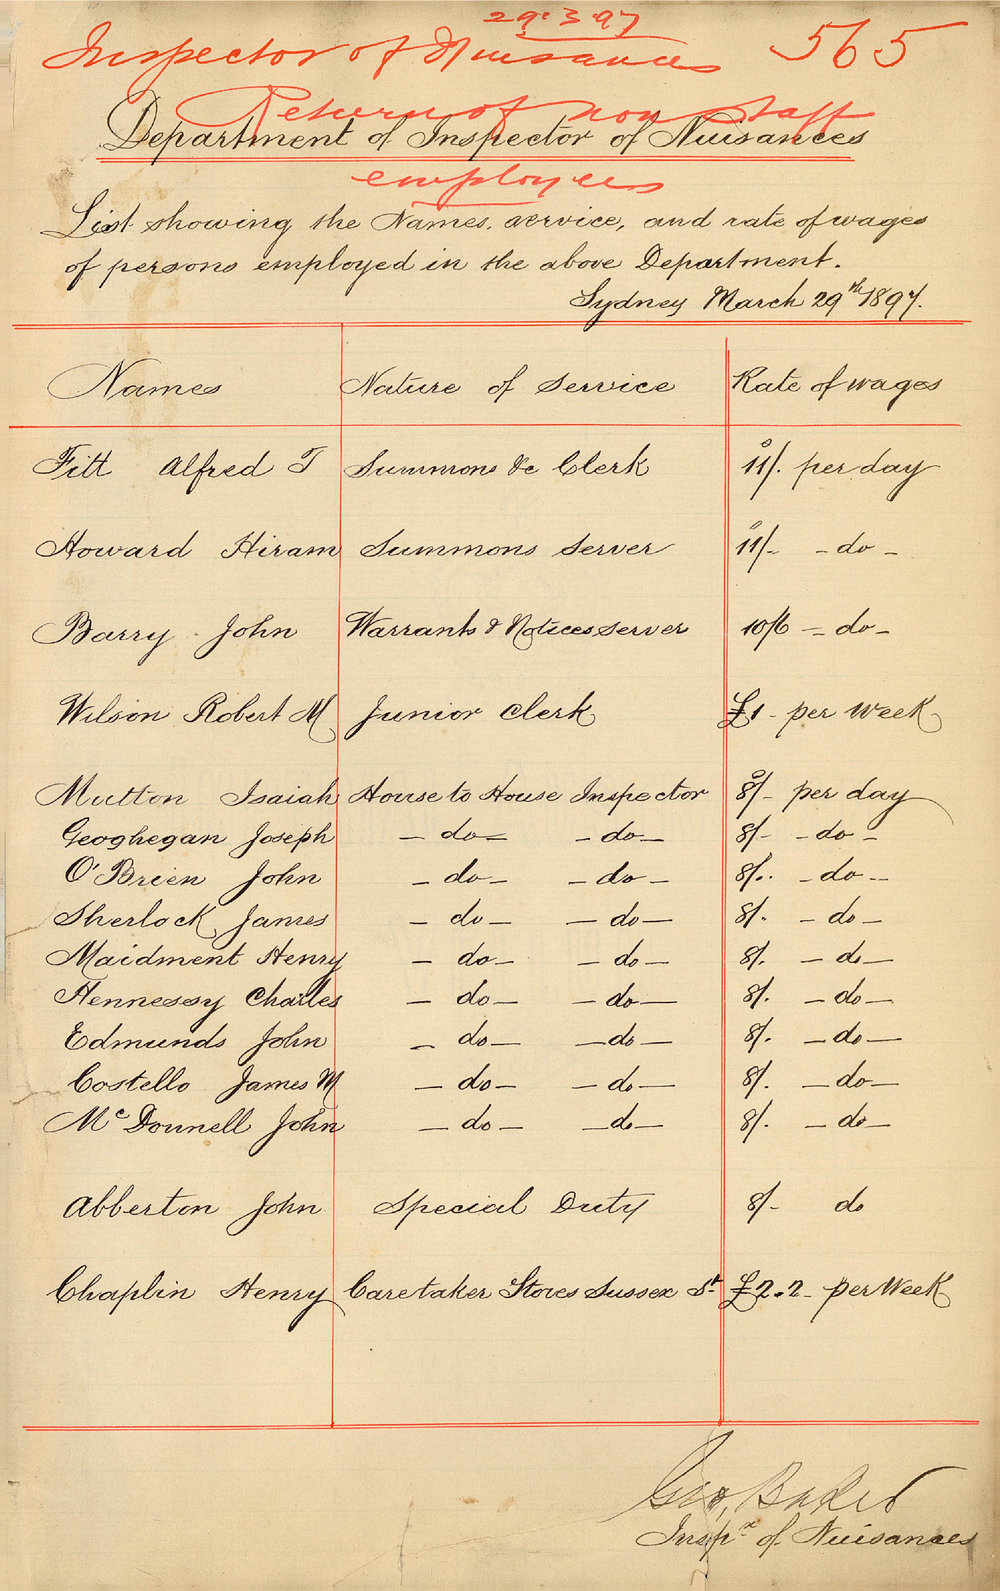 29.3.97
Inspector of Nuisances 565
Return of non staff
Department of Inspector of Nuisances
employees
List showing the Names, service, and rate of wages
of persons employed in the above Department.
Sydney March 29th 1897.
Names Nature of Service Rate of wages
Fitt Alfred T Summons &c Clerk 11/. per day
Howard Hiram Summons Server 11/- - do -
Barry John Warrants & Notices Server 10/6 - do -
Wilson Robert M Junior Clerk £1 - per week
Mutton Isaiah House to House Inspector 8/- per day
Geoghegan Joseph - do - - do - 8/- - do -
O'Brien John - do - - do - 8/. - do -
Sherlock James - do - - do - 8/. - do -
Maidment Henry - do - - do - 8/. - do -
Hennessy Charles - do - - do - 8/. - do -
Edmunds John - do - - do - 8/. - do -
Costello James M - do - - do - 8/. - do -
McDonnell John - do - - do - 8/. - do -
Abberton John Special Duty 8/- do
Chaplin Henry Caretaker Stores Sussex St £2.2- per Week
Geo, Baker
Inspr of Nuisances